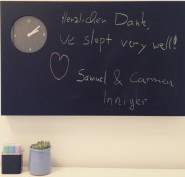 Herzlichen Dank,
we slept very well!
Samuel & Carmen
Inniger